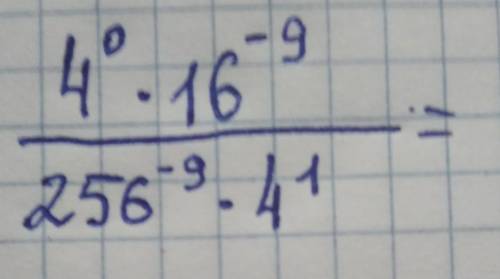 4⁰ · 16⁻⁹
256⁻⁹ · 4¹
=